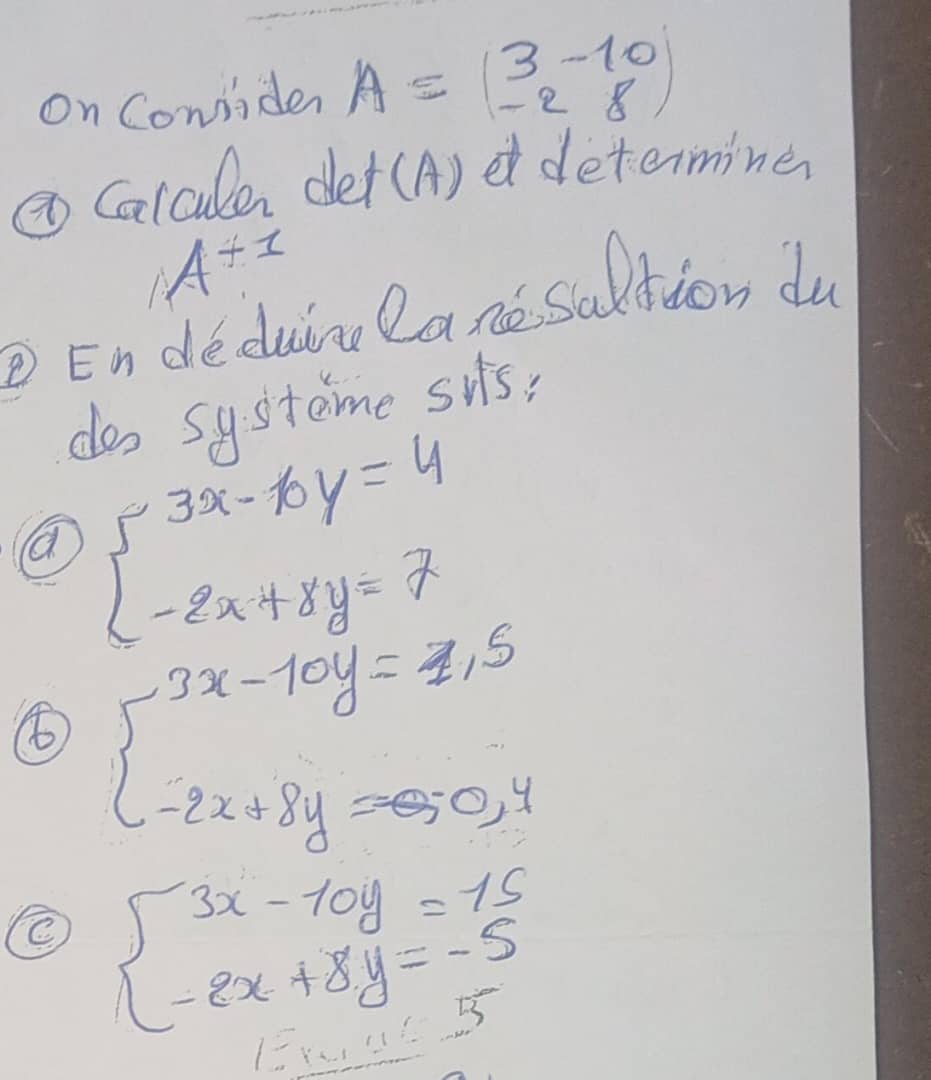 On Consider A = (3 -10
-2 8)
① Calculer det(A) et determiner
A^+1
② En déduire la résultion du
des système svts:
ⓐ { 3x - 10y = 4
-2x + 8y = 7
ⓑ { 3x - 10y = 1,5
-2x + 8y = -0,4
ⓒ { 3x - 10y = 15
-2x + 8y = -5
5